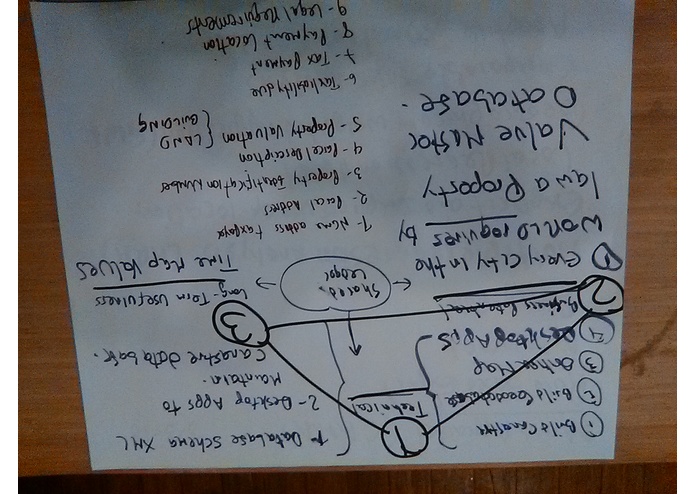 1
① Build
② Build Geodatabase
③ Map
④ Desktop APIs
Technical
1- Database Schema XML
2- Desktop Apps to
Maintain
database.
2
3
Shared
Ledger
Long-Term Usefulness
Time Map Values
① Every City in the
World requires by
law a Property
Value Master
Database.
1- Name address taxpayer
2- Parcel Address
3- Property Identification Number
4- Parcel Description
5- Property Valuation { LAND
{ BUILDING
6- Tax liability due
7- Tax Payment
8- Payment Location
9- Legal Requirements